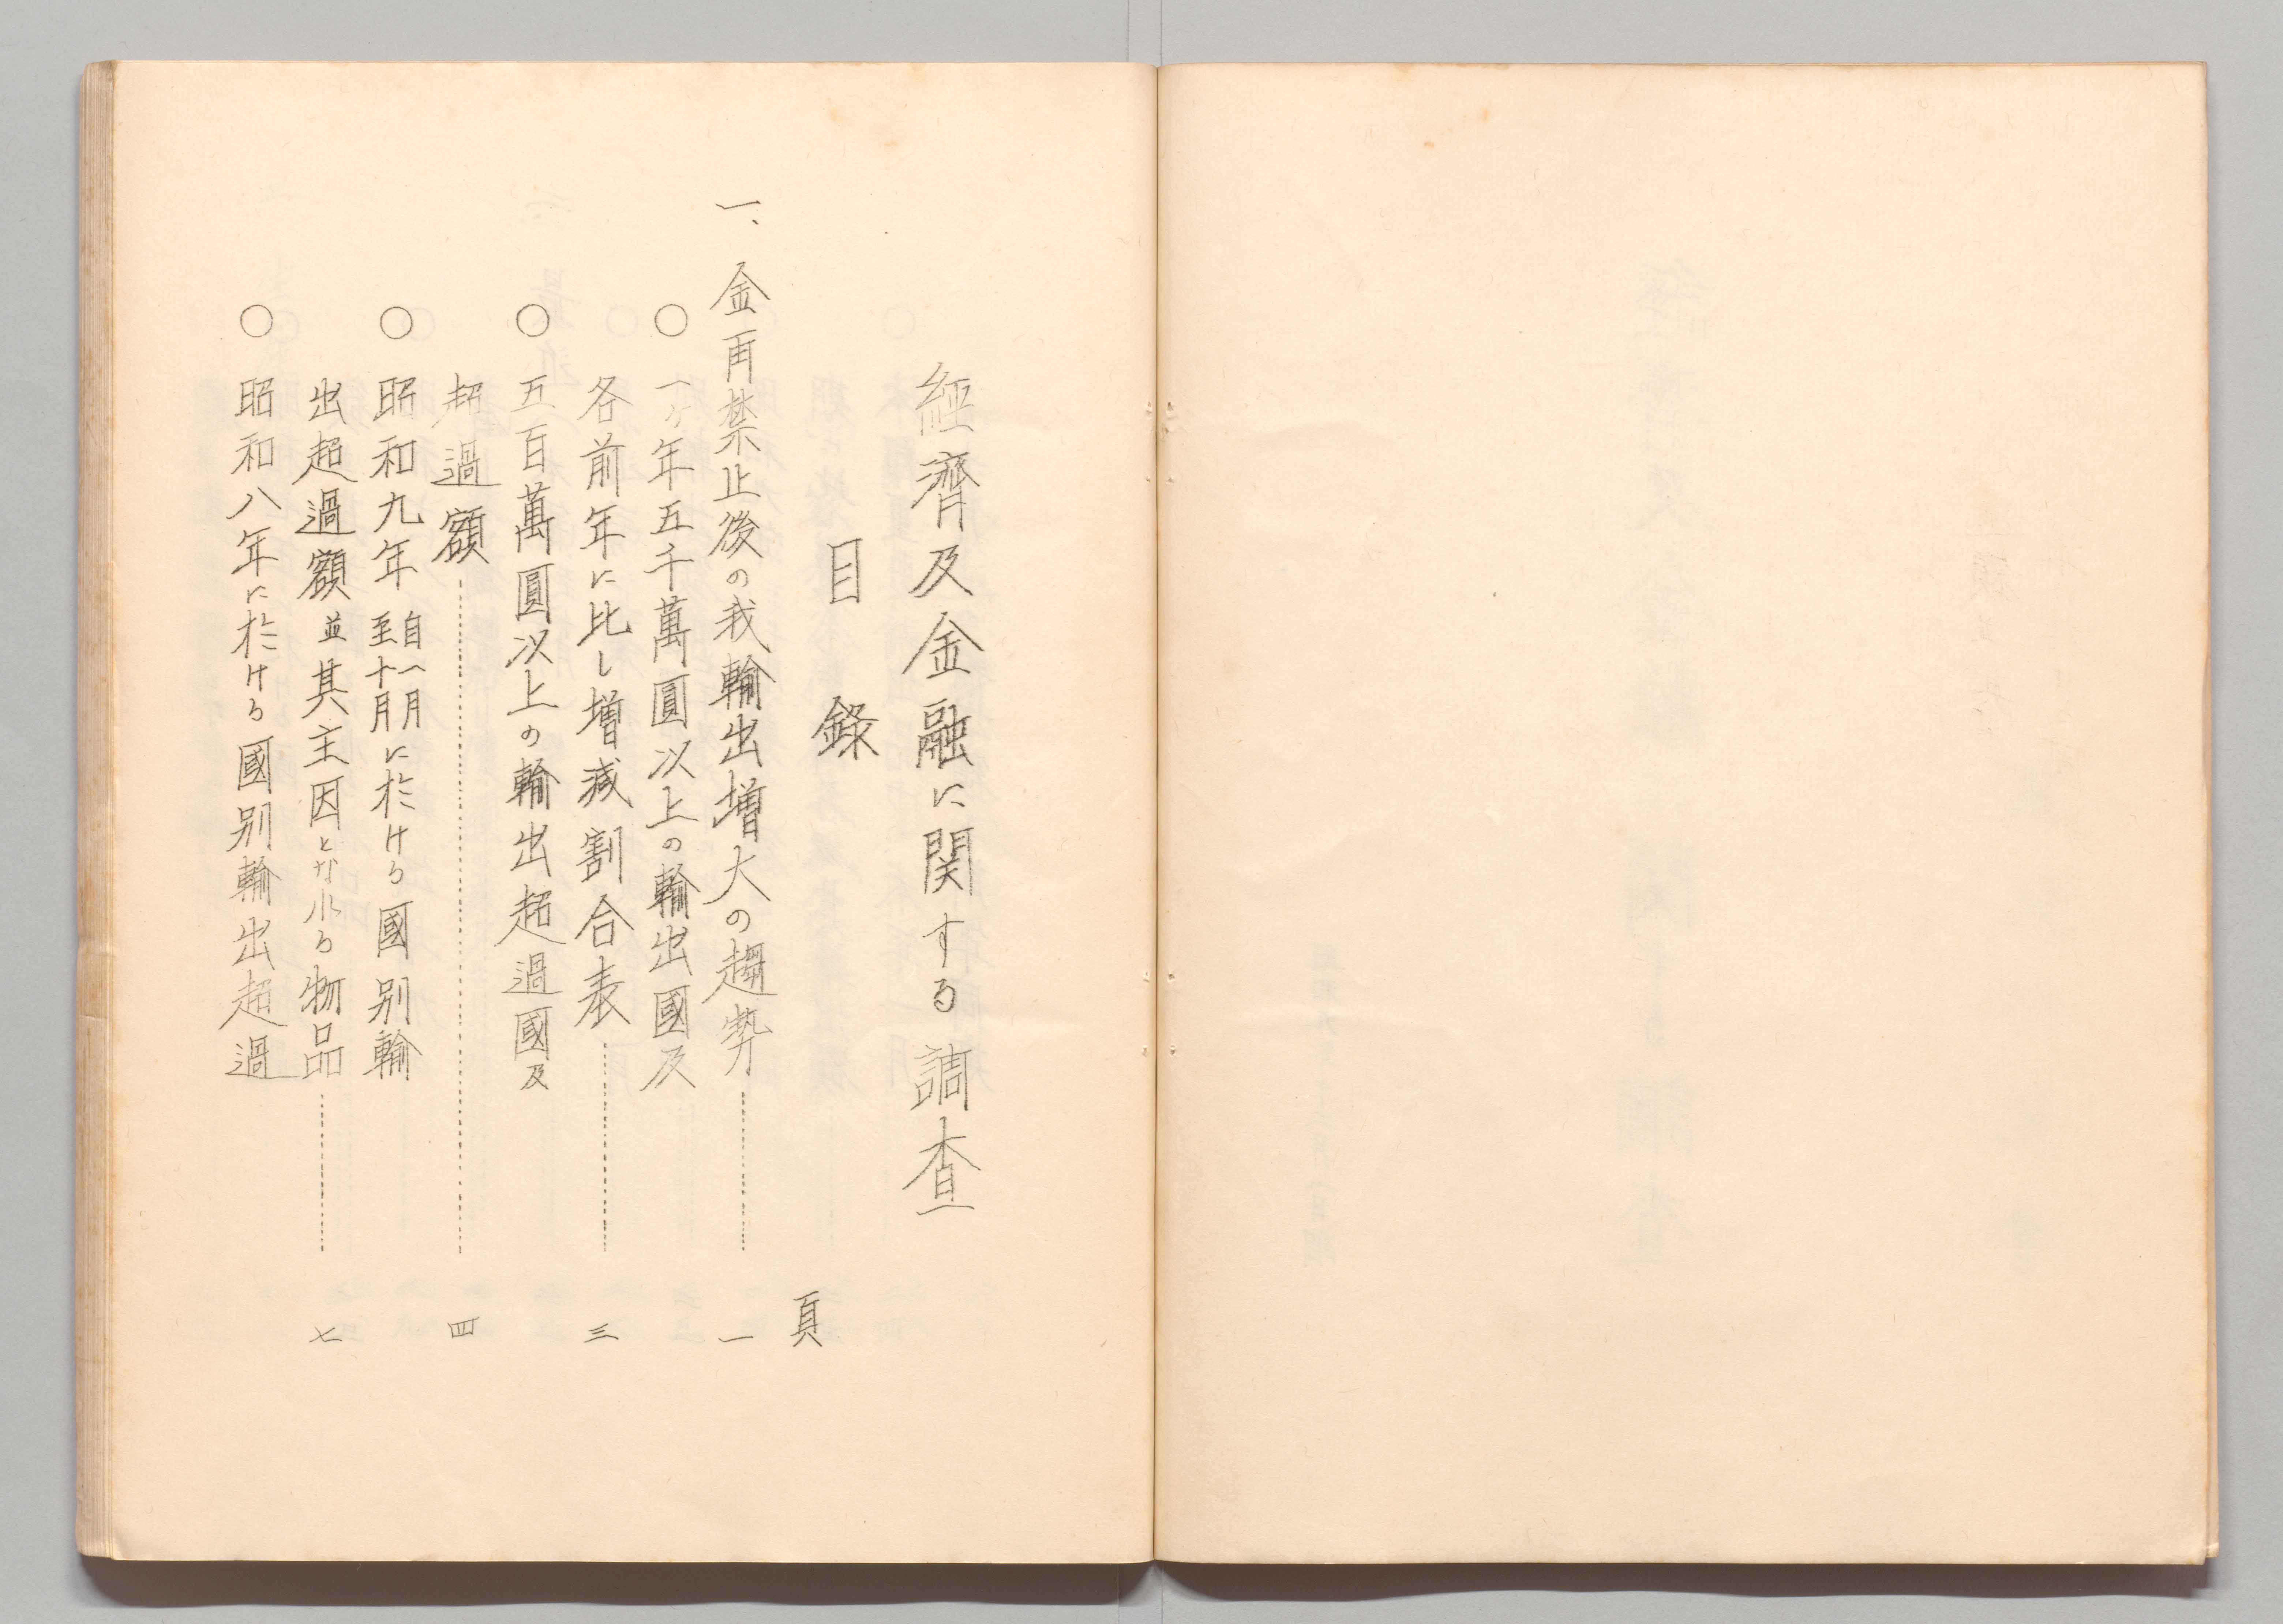 經濟及金融に関する調査
目錄
頁
一、金再禁止後の我輸出增大の趨勢…………一
○一ケ年五千萬圓以上の輸出國及
各前年に比し增減割合表…………三
○五百萬圓以上の輸出超過國及
超過額…………四
○昭和九年自一月至十月に於ける國別輸
出超過額並其主因となれる物品…………七
○昭和八年に於ける國別輸出超過